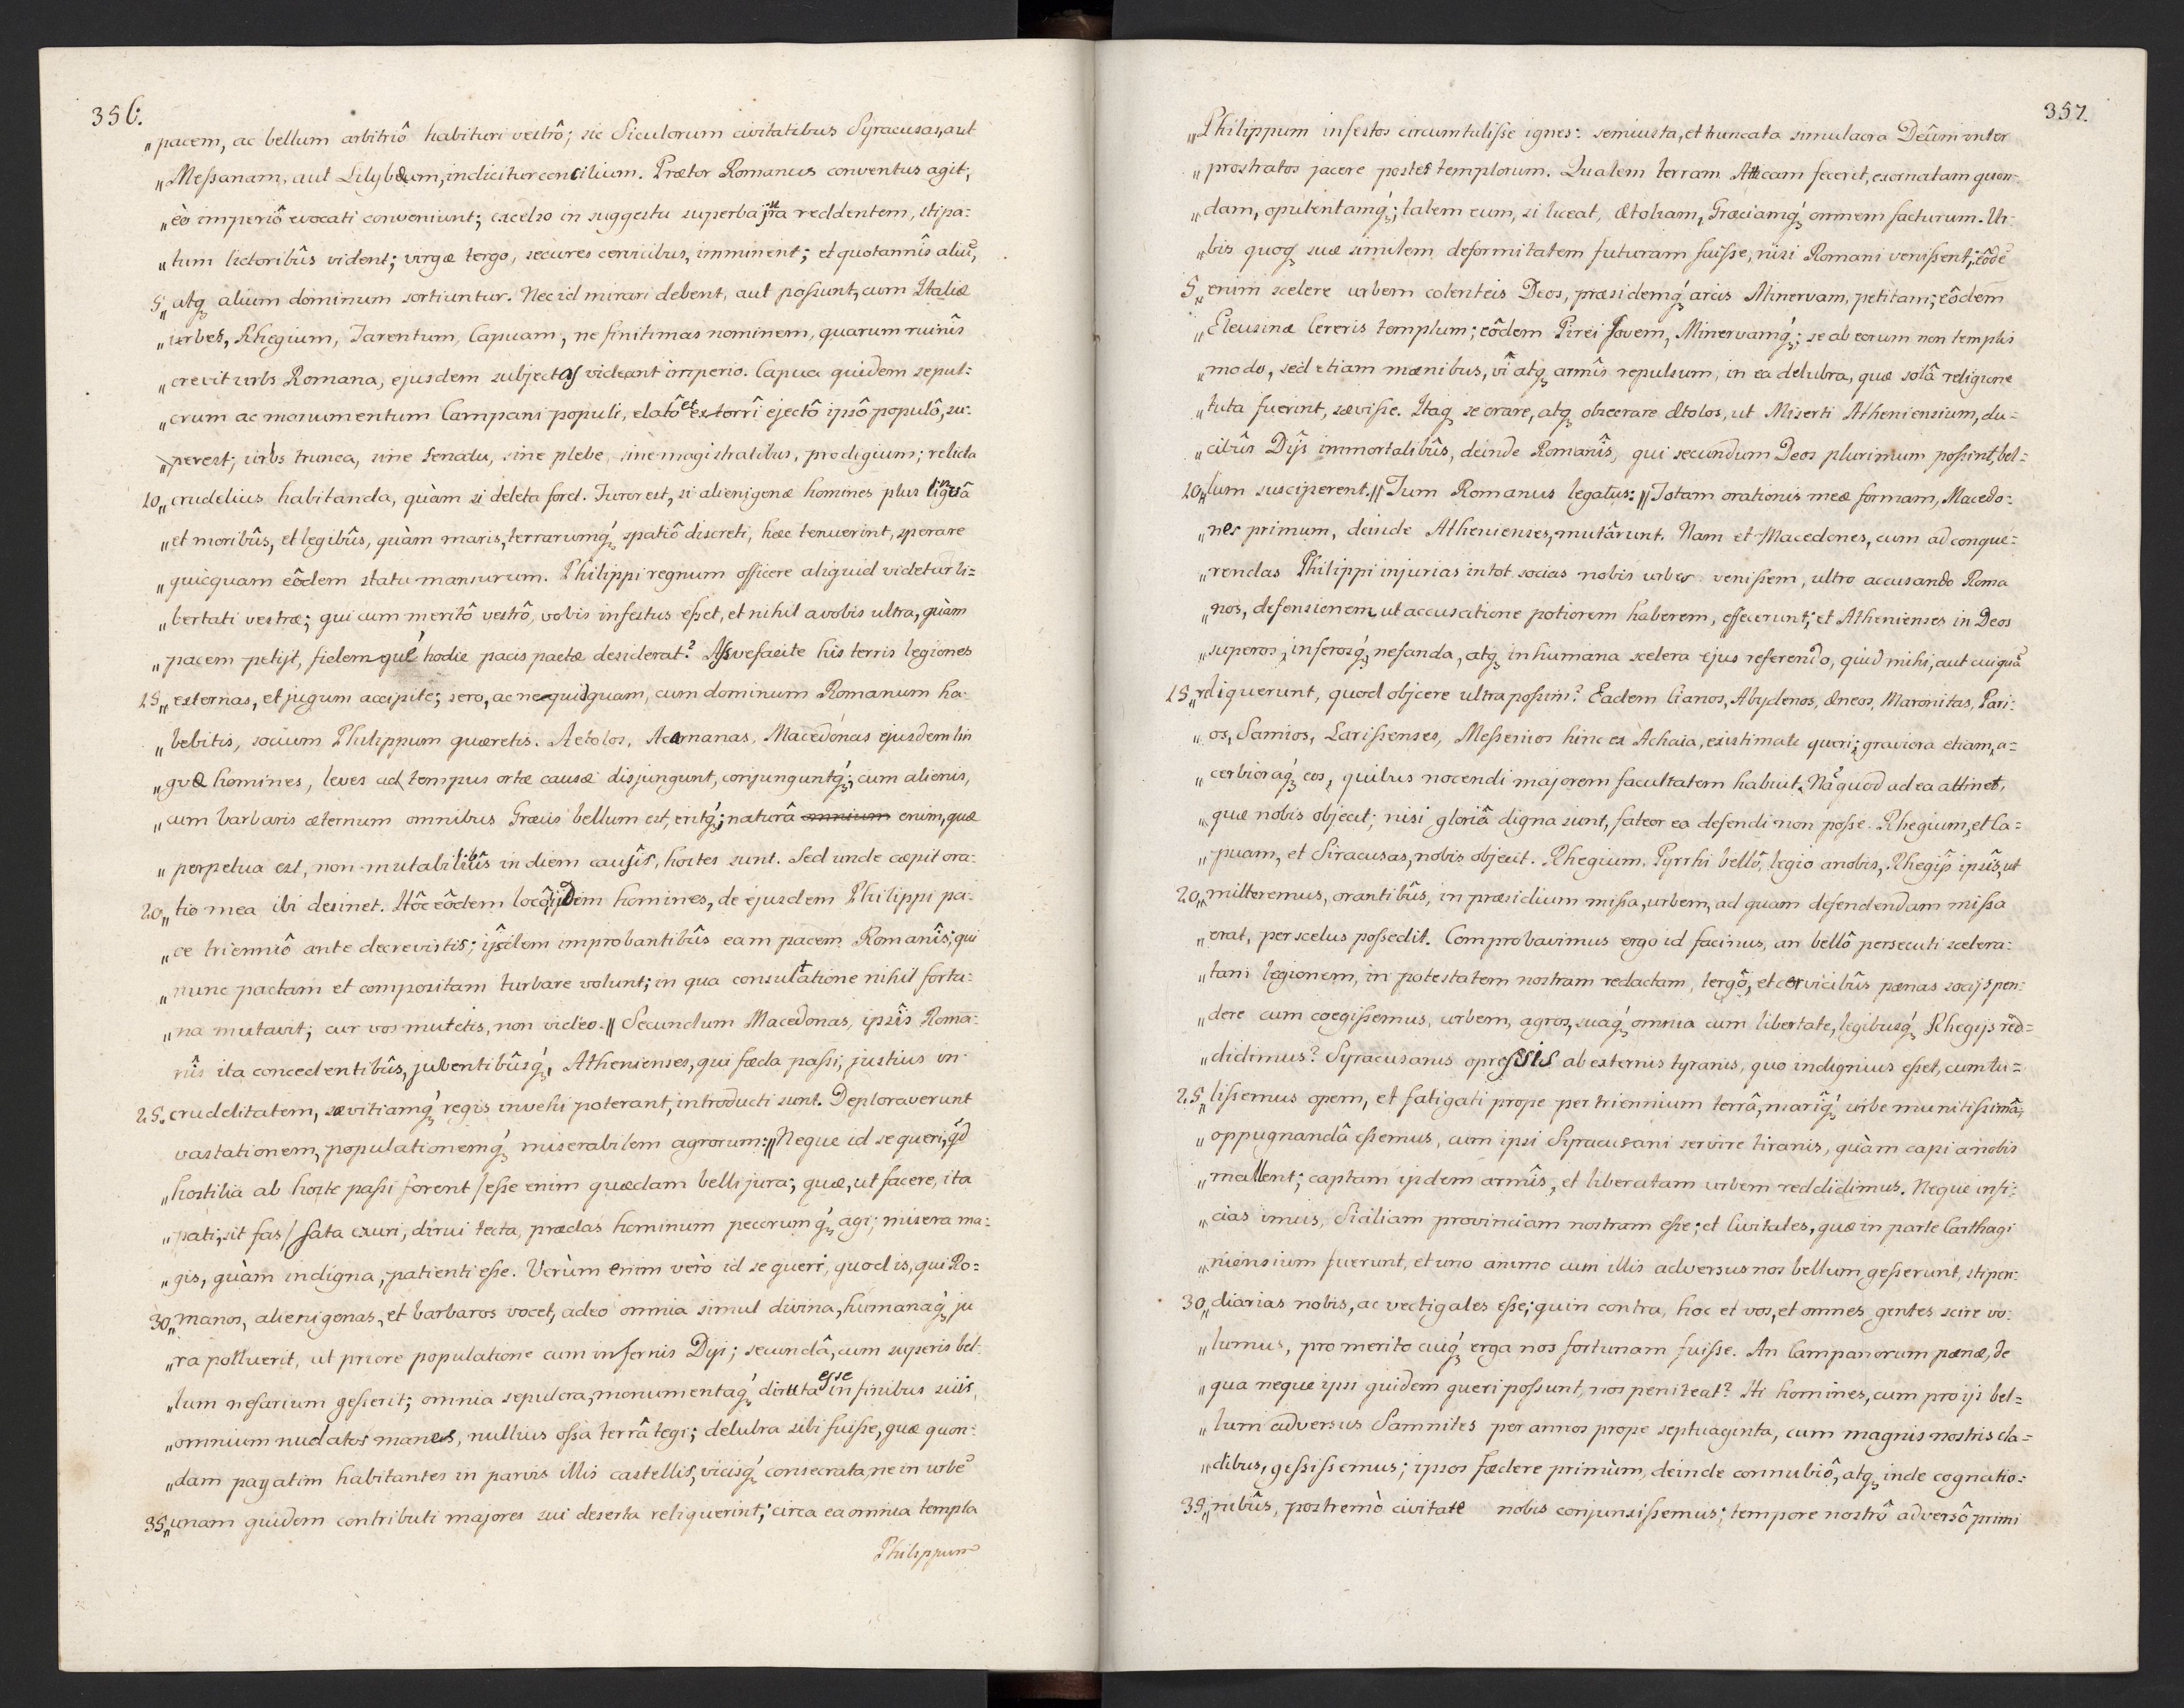 356.
„pacem, ac bellum arbitriô habituri vestrô; sic Siculorum civitatibus Syracusas, aut
„Messanam, aut Lilybæum, indicitur concilium. Prætor Romanus conventus agit;
„eò imperiô evocati conveniunt; excelso in suggestu superba jura reddentem, stipa:
„tum lictoribûs vident; virgæ tergo, secures cervicibus, imminent; et quotannîs aliũ,
5„atq3 alium dominum sortiuntur. Nec id mirari debent, aut possunt, cum Italiæ
„urbes, Rhegium, Tarentum, Capuam, ne finitimas nominem, quarum ruinîs
„crevit urbs Romana, ejusdem subjectas videant imperio. Capua quidem sepul-
„crum ac monumentum Campani populi, elatô et extorrî ejectô ipsô populô, su:
„perest; urbs trunca, sine Senatu, sine plebe, sine magistratibus, prodigium; relicta
10„crudelius habitanda, quàm si deleta foret. Furor est, si alienigenæ homines plus linguâ
„et moribûs, et legibûs, quàm maris, terrarumq́3 spatiô discreti, hæc tenuerint, sperare
„quicquam eôdem statu mansurum. Philippi regnum officere aliquid videtur li=
„bertati vestræ; qui cum meritô vestrô, vobis infestus esset, et nihil a vobis ultra, quàm
„pacem petijt, fidem que hodie pacis pactæ desiderat? Assvefacite his terris legiones
15„externas, et jugum accipite; sero, ac nequidquam, cum dominum Romanum ha:
„bebitis, socium Philippum quæretis. Aetolos, Acarnanas, Macedonas ejusdem lin
„guæ homines, leves ad tempus ortæ causæ disjungunt, conjunguntq́3; cum alienis,
„cum barbaris æternum omnibus Græcis bellum est, eritq́3; naturâ omnium enim, quæ
„perpetua est, non mutabilibûs in diem causîs, hostes sunt. Sed unde cæpit ora:
20„tio mea ibi desinet. Hôc eôdem locô, ijdem homines, de ejusdem Philippi pa:
„ce trienniô ante decrevistis; ijsdem improbantibûs eam pacem Romanîs; qui
„nunc pactam et compositam turbare volunt; in qua consultatione nihil fortu:
„na mutavit; cur vos mutetis, non video.|| Secundum Macedonas, ipsîs Roma:
nîs ita concedentibûs, jubentibûsq́3, Athenienses, qui fæda passi, justius in
25. crudelitatem, sævitiamq́3 regis invehi poterant, introducti sunt. Deploraverunt
vastationem, populationemq́3 miserabilem agrorum:|| Neque id se queri, q̃d
„hostilia ab hoste passi forent / esse enim quædam belli jura; quæ, ut facere, ita
„pati, sit fas / sata exuri, dirui tecta, prædas hominum pecorumq́3 agi; misera ma:
„gis, quàm indigna, patienti esse. Verùm enim verò id se queri, quod is, qui Ro=
30„manos, alienigenas, et barbaros vocet, adeo omnia simul divina, humanaq́3 ju
„ra polluerit, ut priore populatione cum infernis Dijs; secundâ, cum superis bel-
„lum nefarium gesserit; omnia sepulcra, monumentaq́3 diruta esse in finibus suis,
„omnium nudatos manes, nullius ossa terrâ tegi; delubra sibi fuisse, quæ quon:
„dam pagatim habitantes in parvis illis castellis, vicisq́3 consecrata, ne in urbẽ
35„unam quidem contributi majores sui deserta reliquerint; circa ea omnia templa
Philippum
357.
„Philippum infestos circumtulisse ignes: semiusta, et truncata simulacra Deûm inter
„prostratos jacere postes templorum. Qualem terram Atticam fecerit, exornatam quon-
„dam, opulentamq́3; talem eum, si liceat, Ætoliam, Græciamq́3 omnem facturum. Ur:
„bis quoq3 suæ similem deformitatem futuram fuisse, nisi Romani venissent; eôdẽ
5„enim scelere urbem colenteis Deos, præsidemq́3 arcis Minervam, petitam; eôdem
„Eleusinæ Cereris templum; eôdem Pirei Jovem, Minervamq́3; se ab eorum non templis
„modo, sed etiam mænibus, vî atq3 armîs repulsum, in ea delubra, quæ solâ religione
„tuta fuerint, sævisse. Itaq3 se orare, atq3 obsecrare Ætolos, ut Miserti Atheniensium, du=
„cibûs Dijs immortalibûs, deinde Romanîs, qui secundum Deos plurimum possint, bel=
10„lum susciperent.|| Tum Romanus legatus:|| Totam orationis meæ formam, Macedo:
„nes primum, deinde Athenienses, mutârunt. Nam et Macedones, cum ad conque:
„rendas Philippi injurias in tot socias nobis urbes venissem, ultro accusando Roma
„nos, defensionem ut accusatione potiorem haberem, effecerunt; et Athenienses in Deos
„superos, inferosq́3, nefanda, atq3 inhumana scelera ejus referendo, quid mihi, aut cuiquã
15„reliquerunt, quod objcere ultra possim? Eadem Cianos, Abydenos, Æneos, Maronitas, Pari:
„os, Samios, Larissenses, Messenios hinc ex Achaia, existimate queri; graviora etiam, a=
„cerbioraq́3 eos, quibus nocendi majorem facultatem habuit. Nã quod ad ea attinet,
„quæ nobis objecit; nisi gloriâ digna sunt, fateor ea defendi non posse. Rhegium, et Ca=
„puam, et Siracusas, nobis objecit. Rhegium, Pyrrhi bellô, legio a nobis, Rhegijs ipsîs, ut
20„mitteremus, orantibûs, in præsidium missa, urbem, ad quam defendendam missa
„erat, per scelus possedit. Comprobavimus ergo id facinus, an bellô persecuti scelera:
„tam legionem, in potestatem nostram redactam, tergô, et cervicibûs pænas socijs pen:
„dere cum coegissemus, urbem, agros, suaq́3 omnia cum libertate, legibusq́3 Rhegijs red=
„didimus? Syracusanis opressis ab externis tyranis, quo indignius esset, cum tu=
25„lissemus opem, et fatigati prope per triennium terrâ, mariq́3 urbe munitissimâ,
„oppugnandâ essemus, cum ipsi Syracusani servire tiranis, quàm capi a nobis
„mallent; captam ijsdem armîs, et liberatam urbem reddidimus. Neque infi:
„cias imus, Siciliam provinciam nostram esse; et Civitates, quæ in parte Carthagi
„niensium fuerunt, et uno animo cum illis adversus nos bellum gesserunt, stipen:
30„diarias nobis, ac vectigales esse; quin contra, hoc et vos, et omnes gentes scire vo:
„lumus, pro merito cuiq́3 erga nos fortunam fuisse. An Campanorum pænæ, de
„qua neque ipsi quidem queri possunt, nos peniteat? Hi homines, cum pro ijs bel=
„lum adversus Samnites per annos prope septuaginta, cum magnis nostris cla=
„dibus, gessissemus; ipsos fædere primùm, deinde connubiô, atq3 inde cognatio:
35„nibûs, postremò civitate nobis conjunxissemus; tempore nostrô adversô primi